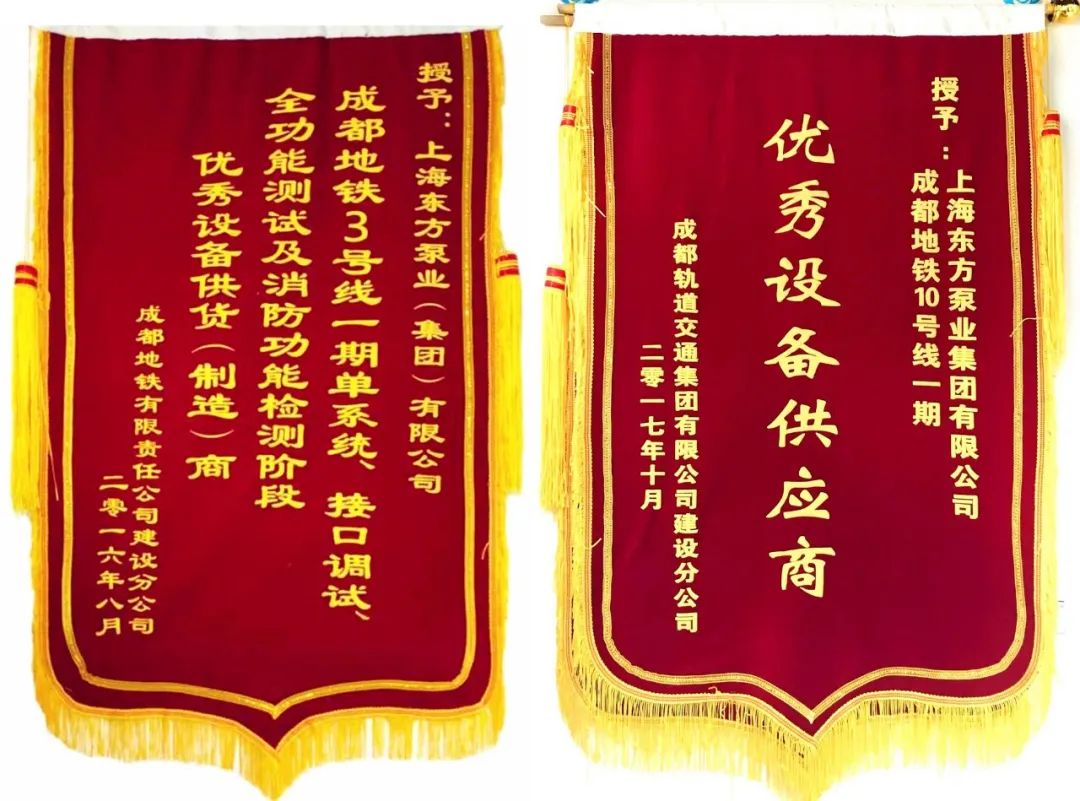 授予：上海东方泵业（集团）有限公司
成都地铁3号线一期单系统、接口调试、
全功能测试及消防功能检测阶段
优秀设备供货（制造）商
成都地铁有限责任公司建设分公司
二零一六年八月
授予：上海东方泵业集团有限公司
成都地铁10号线一期
优秀设备供应商
成都轨道交通集团有限公司建设分公司
二零一七年十月